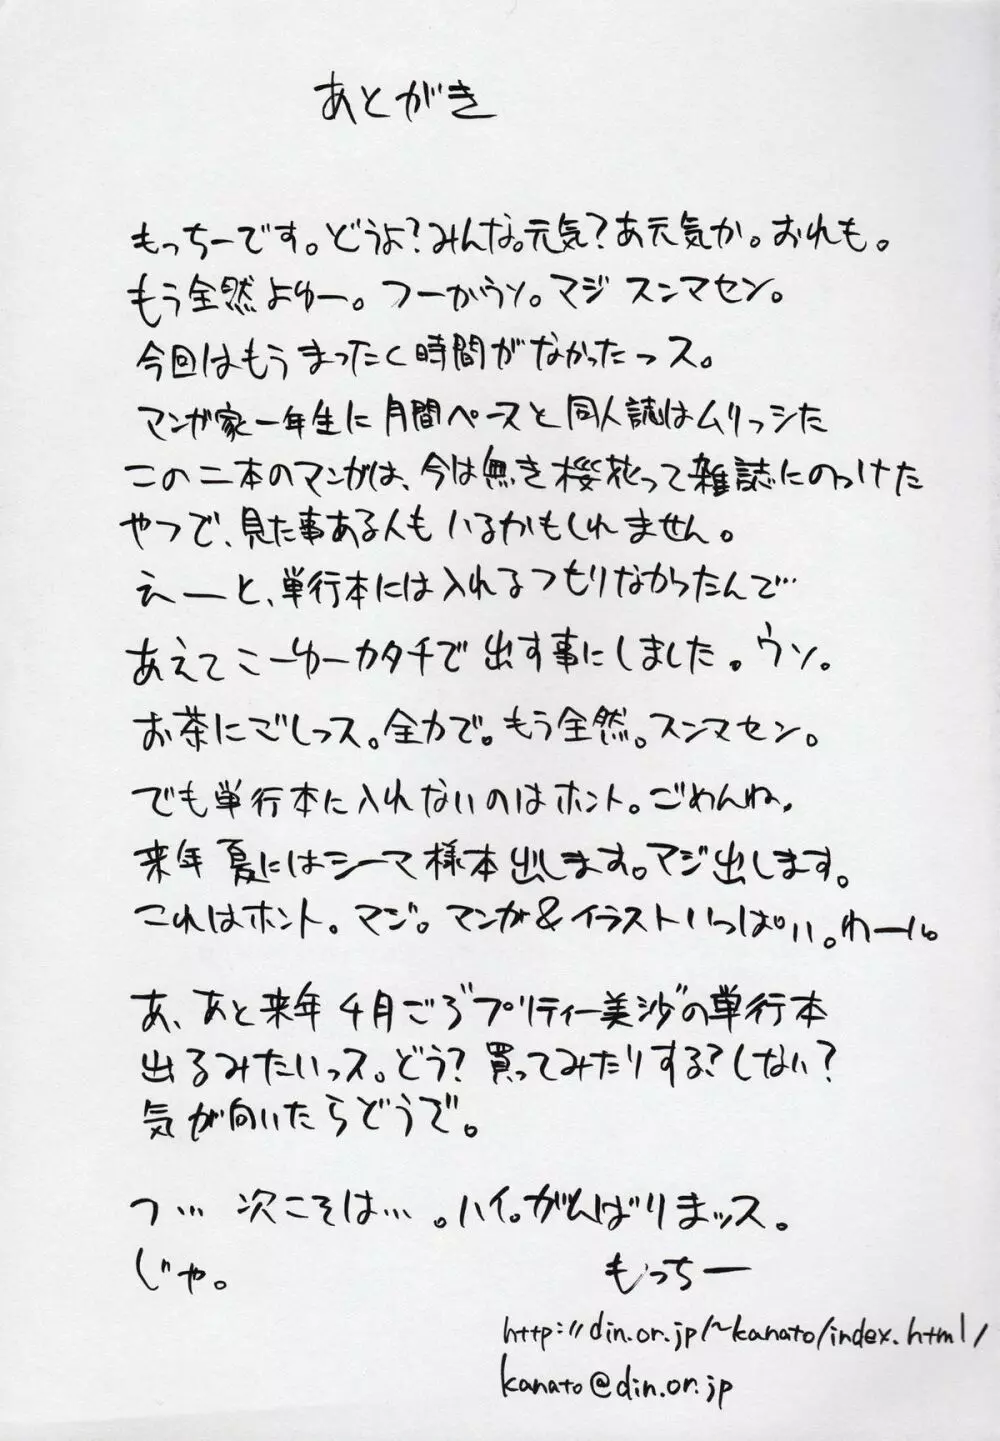 あとがき
もっちーです。どうよ？みんな。元気？あ元気か。おれも。
もう全然よゆー。つーかウソ。マジ スンマセン。
今回はもうまったく時間がなかったっス。
マンガ家一年生に月間ペースと同人誌はムリっシた
この二本のマンガは、今は無き桜花って雑誌にのっけた
やつで、見た事ある人もいるかもしれません。
えーと、単行本には入れるつもりなかったんで…
あえてこーゆーカタチで出す事にしました。ウソ。
お茶にごしっス。全力で。もう全然。スンマセン。
でも単行本に入れないのはホント。ごめんね。
来年夏にはシーマ様本出します。マジ出します。
これはホント。マジ。マンガ&イラストいっぱい。わーい。
あ、あと来年4月ごろ"プリティー美沙"の単行本
出るみたいっス。どう？買ってみたりする？しない？
気が向いたらどうぞ。
つ… 次こそは…。ハイ。がんばりまッス。
じゃ。 もっちー
http://din.or.jp/~kanato/index.html/
kanato@din.or.jp